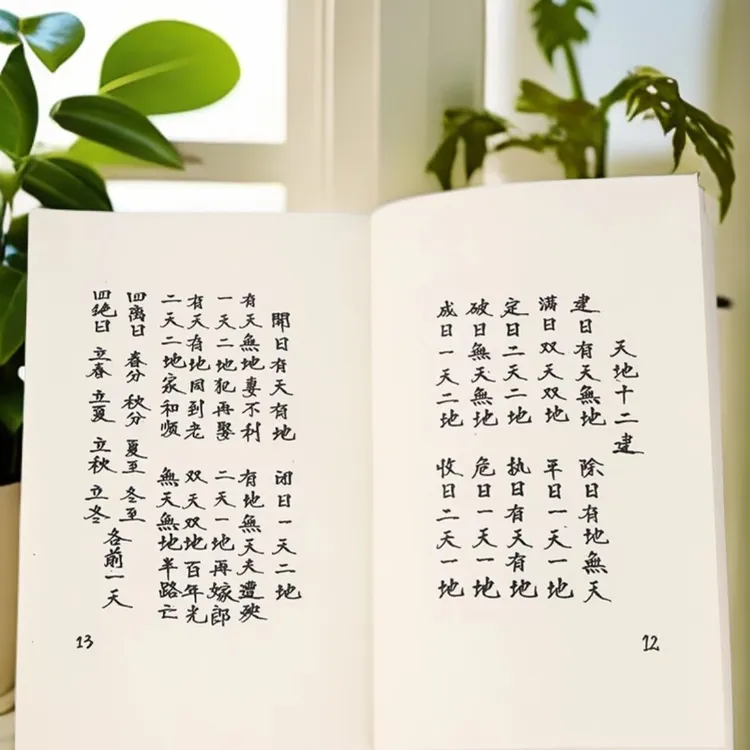 天地十二建
建日有天無地 除日有地無天
满日双天双地 平日一天一地
定日二天二地 执日有天有地
破日無天無地 危日一天一地
成日一天二地 收日二天一地
12
開日有天有地 闭日一天二地
有天無地妻不利 有地無天夫遭殃
一天二地犯再娶 二天一地再嫁郎
有天有地同到老 双天双地百年光
二天二地家和顺 無天無地半路亡
四离日 春分 秋分 夏至 冬至
四绝日 立春 立夏 立秋 立冬
各前一天
13